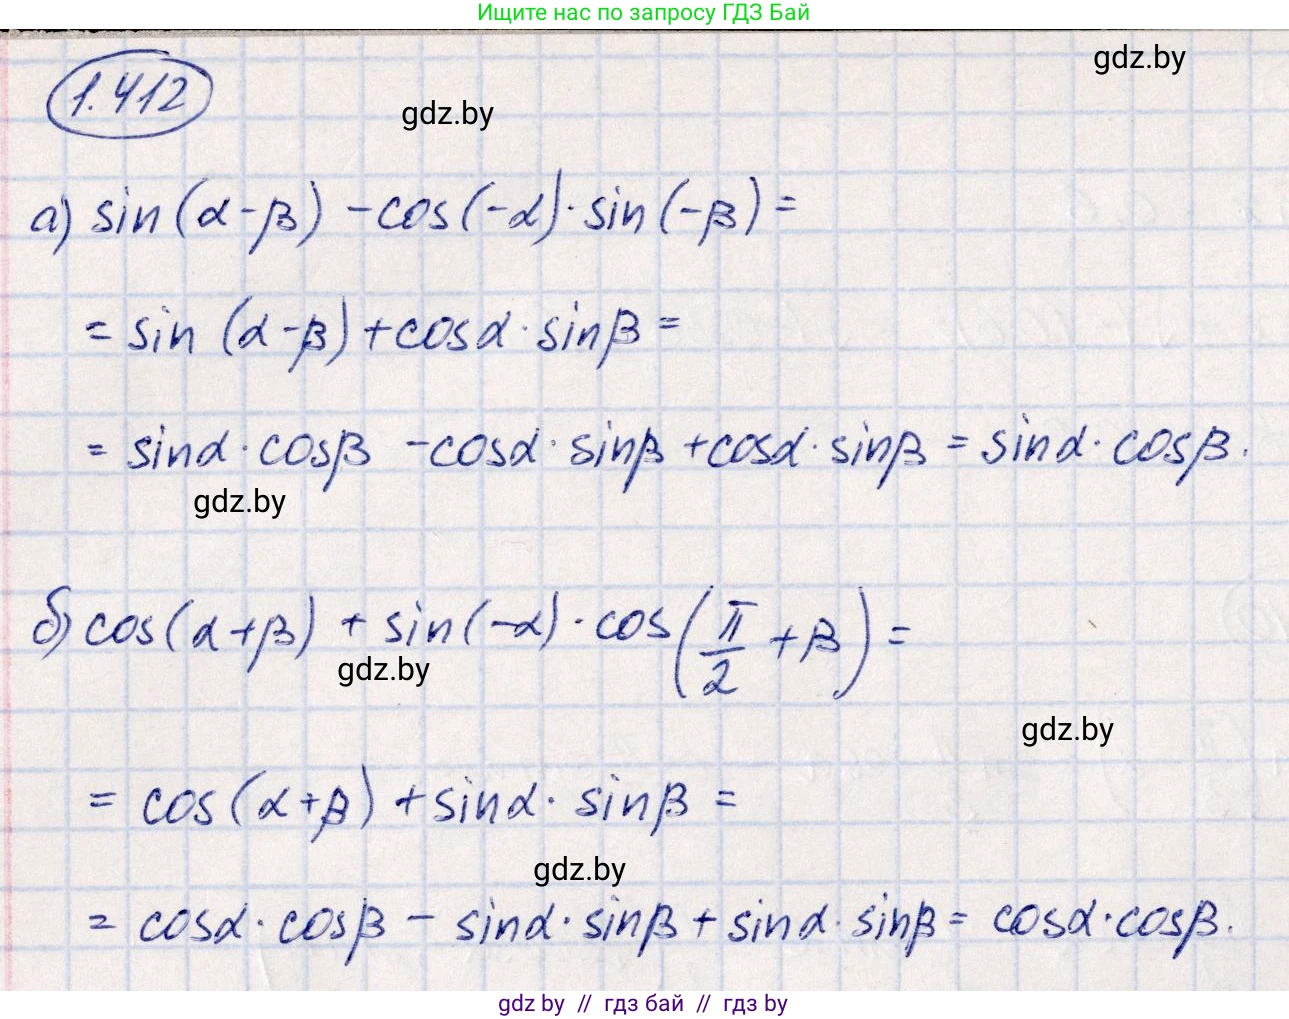 Ищите нас по запросу ГДЗ Бай
gdz.by
1.412
gdz.by
а) sin(α-β) -cos(-α)·sin(-β)=
= sin (α-β)+cosα·sinβ=
= sinα·cosβ -cosα·sinβ +cosα·sinβ = sinα·cosβ.
gdz.by
б) cos(α+β) + sin(-α)·cos(π/2 +β)=
gdz.by
gdz.by
= cos(α+β) +sinα·sinβ =
gdz.by
= cosα·cosβ - sinα·sinβ + sinα·sinβ = cosα·cosβ.
gdz by // гдз бай // гдз by